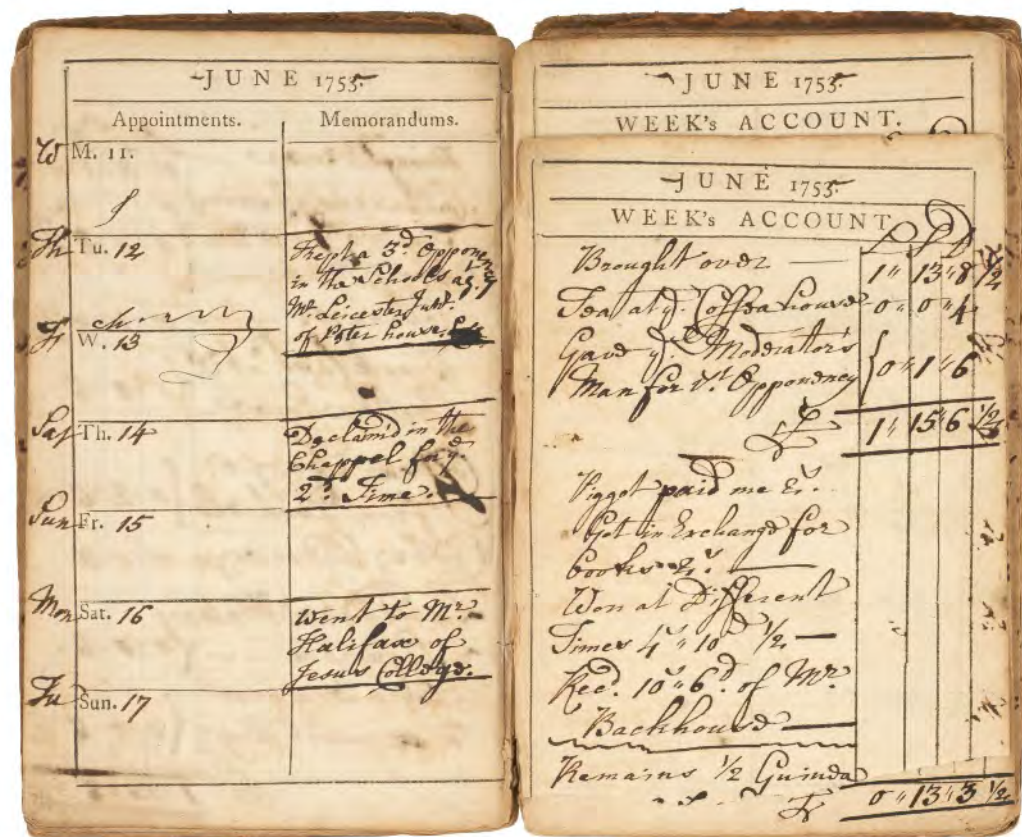 JUNE 1755
Appointments. Memorandums.
W M. 11.
Th Tu. 12
Kept a 3d. Opponency
in the Schools agt.
Mr. Leicester Junr.
of Peter house.
Fr W. 13
Sat Th. 14
Declaim'd in the
Chappel for ye.
2d. Time.
Sun Fr. 15
Mon Sat. 16
Went to Mr.
Halifax of
Jesus College.
Tu Sun. 17
JUNE 1755
WEEK's ACCOUNT.
JUNE 1755
WEEK's ACCOUNT
L S D
Brought over — 1 " 13 " 8 1/2
Tea at ye. Coffea house - 0 " 0 " 4
Gave ye. Moderator's
Man for ye. Opponency { 0 " 1 " 6
1 " 15 " 6 1/2
Piggot paid me
Got in Exchange for
books
Won at Different
Times 4s " 10d 1/2 —
Recd. 10s " 6d. of Mr.
Backhouse —
Remains 1/2 Guinea
0 " 13 " 3 1/2